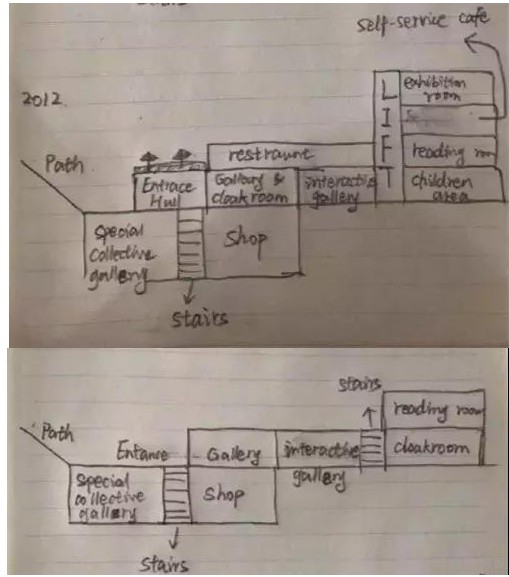 self-service cafe
2012.
Path
L
I
F
T
exhibition
room
reading room
children
area
restraunt
Entrace
Hull
Gallery &
cloakroom
interactive
gallery
Special
collective
gallery
Shop
stairs
Path
Entance
Gallery
interactive
gallery
stairs
reading room
cloakroom
Special
collective
gallery
Shop
stairs